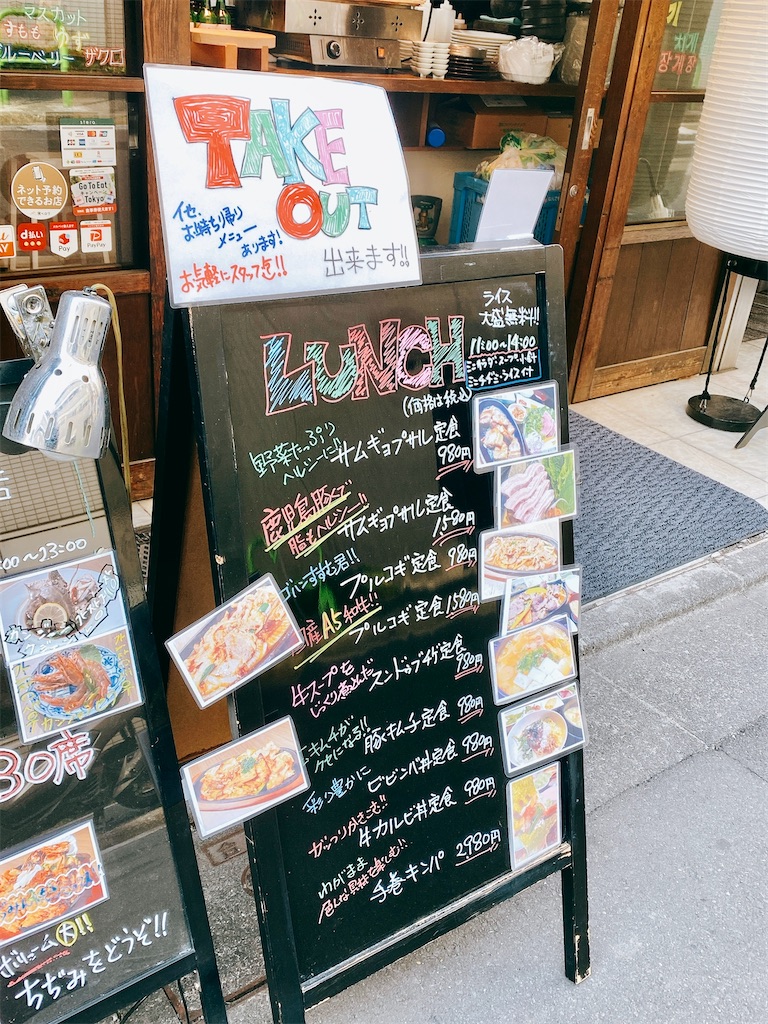 マスカット
すもも ゆず
ブルーベリー ザクロ
ネット予約
できるお店
Go To Eat
キャンペーン
Tokyo
d払い
Pay
PayPay
TAKE
OUT
出来ます!!
他、
お持ち帰り
メニュー
あります!
お気軽にスタッフ迄!!
LUNCH
(価格は税込)
ライス
大盛無料!!
11:00~14:00
野菜たっぷり
ヘルシーに!!
サムギョプサル定食
980円
鹿児島豚で
脂もヘルシー!!
サムギョプサル定食
1580円
ゴハンすすむ君!!
プルコギ定食 980円
産A5和牛!!
プルコギ定食 1580円
牛スープを
じっくり煮込んだ
スンドゥブチゲ定食
980円
キムチが
クセになる!!
豚キムチ定食 980円
彩り豊かに
ビビンバ丼定食 980円
ガッツリかきこも!!
牛カルビ丼定食 980円
わがまま
色んな具材を楽しむ!!
手巻キンパ 2980円
00~23:00
30席
ボリューム大!!
ちぢみをどうぞ!!